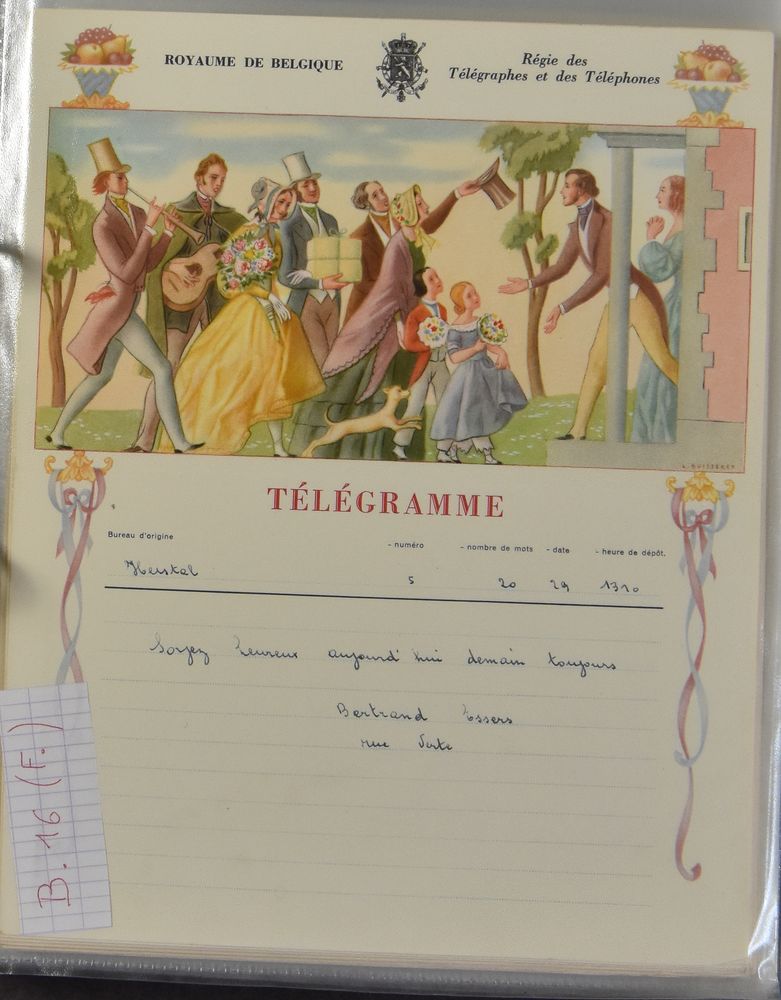 ROYAUME DE BELGIQUE
Régie des
Télégraphes et des Téléphones
L. BUISSERET
TÉLÉGRAMME
Bureau d'origine - numéro - nombre de mots - date - heure de dépôt.
5 20 29 1310
Soyez heureux aujourd'hui demain toujours
Bertrand Essers
rue Verte
B. 16 (F.)